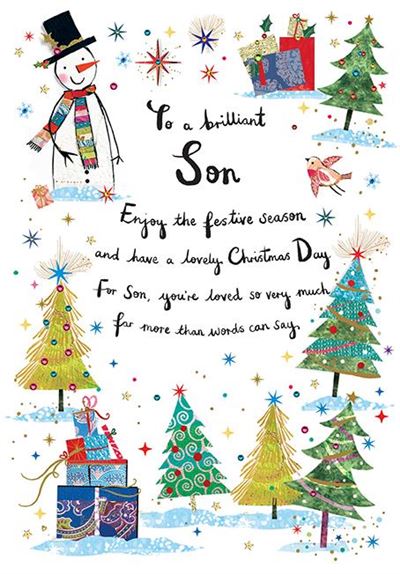 To a brilliant
Son
Enjoy the festive season
and have a lovely Christmas Day
For Son, you're loved so very much
far more than words can say.